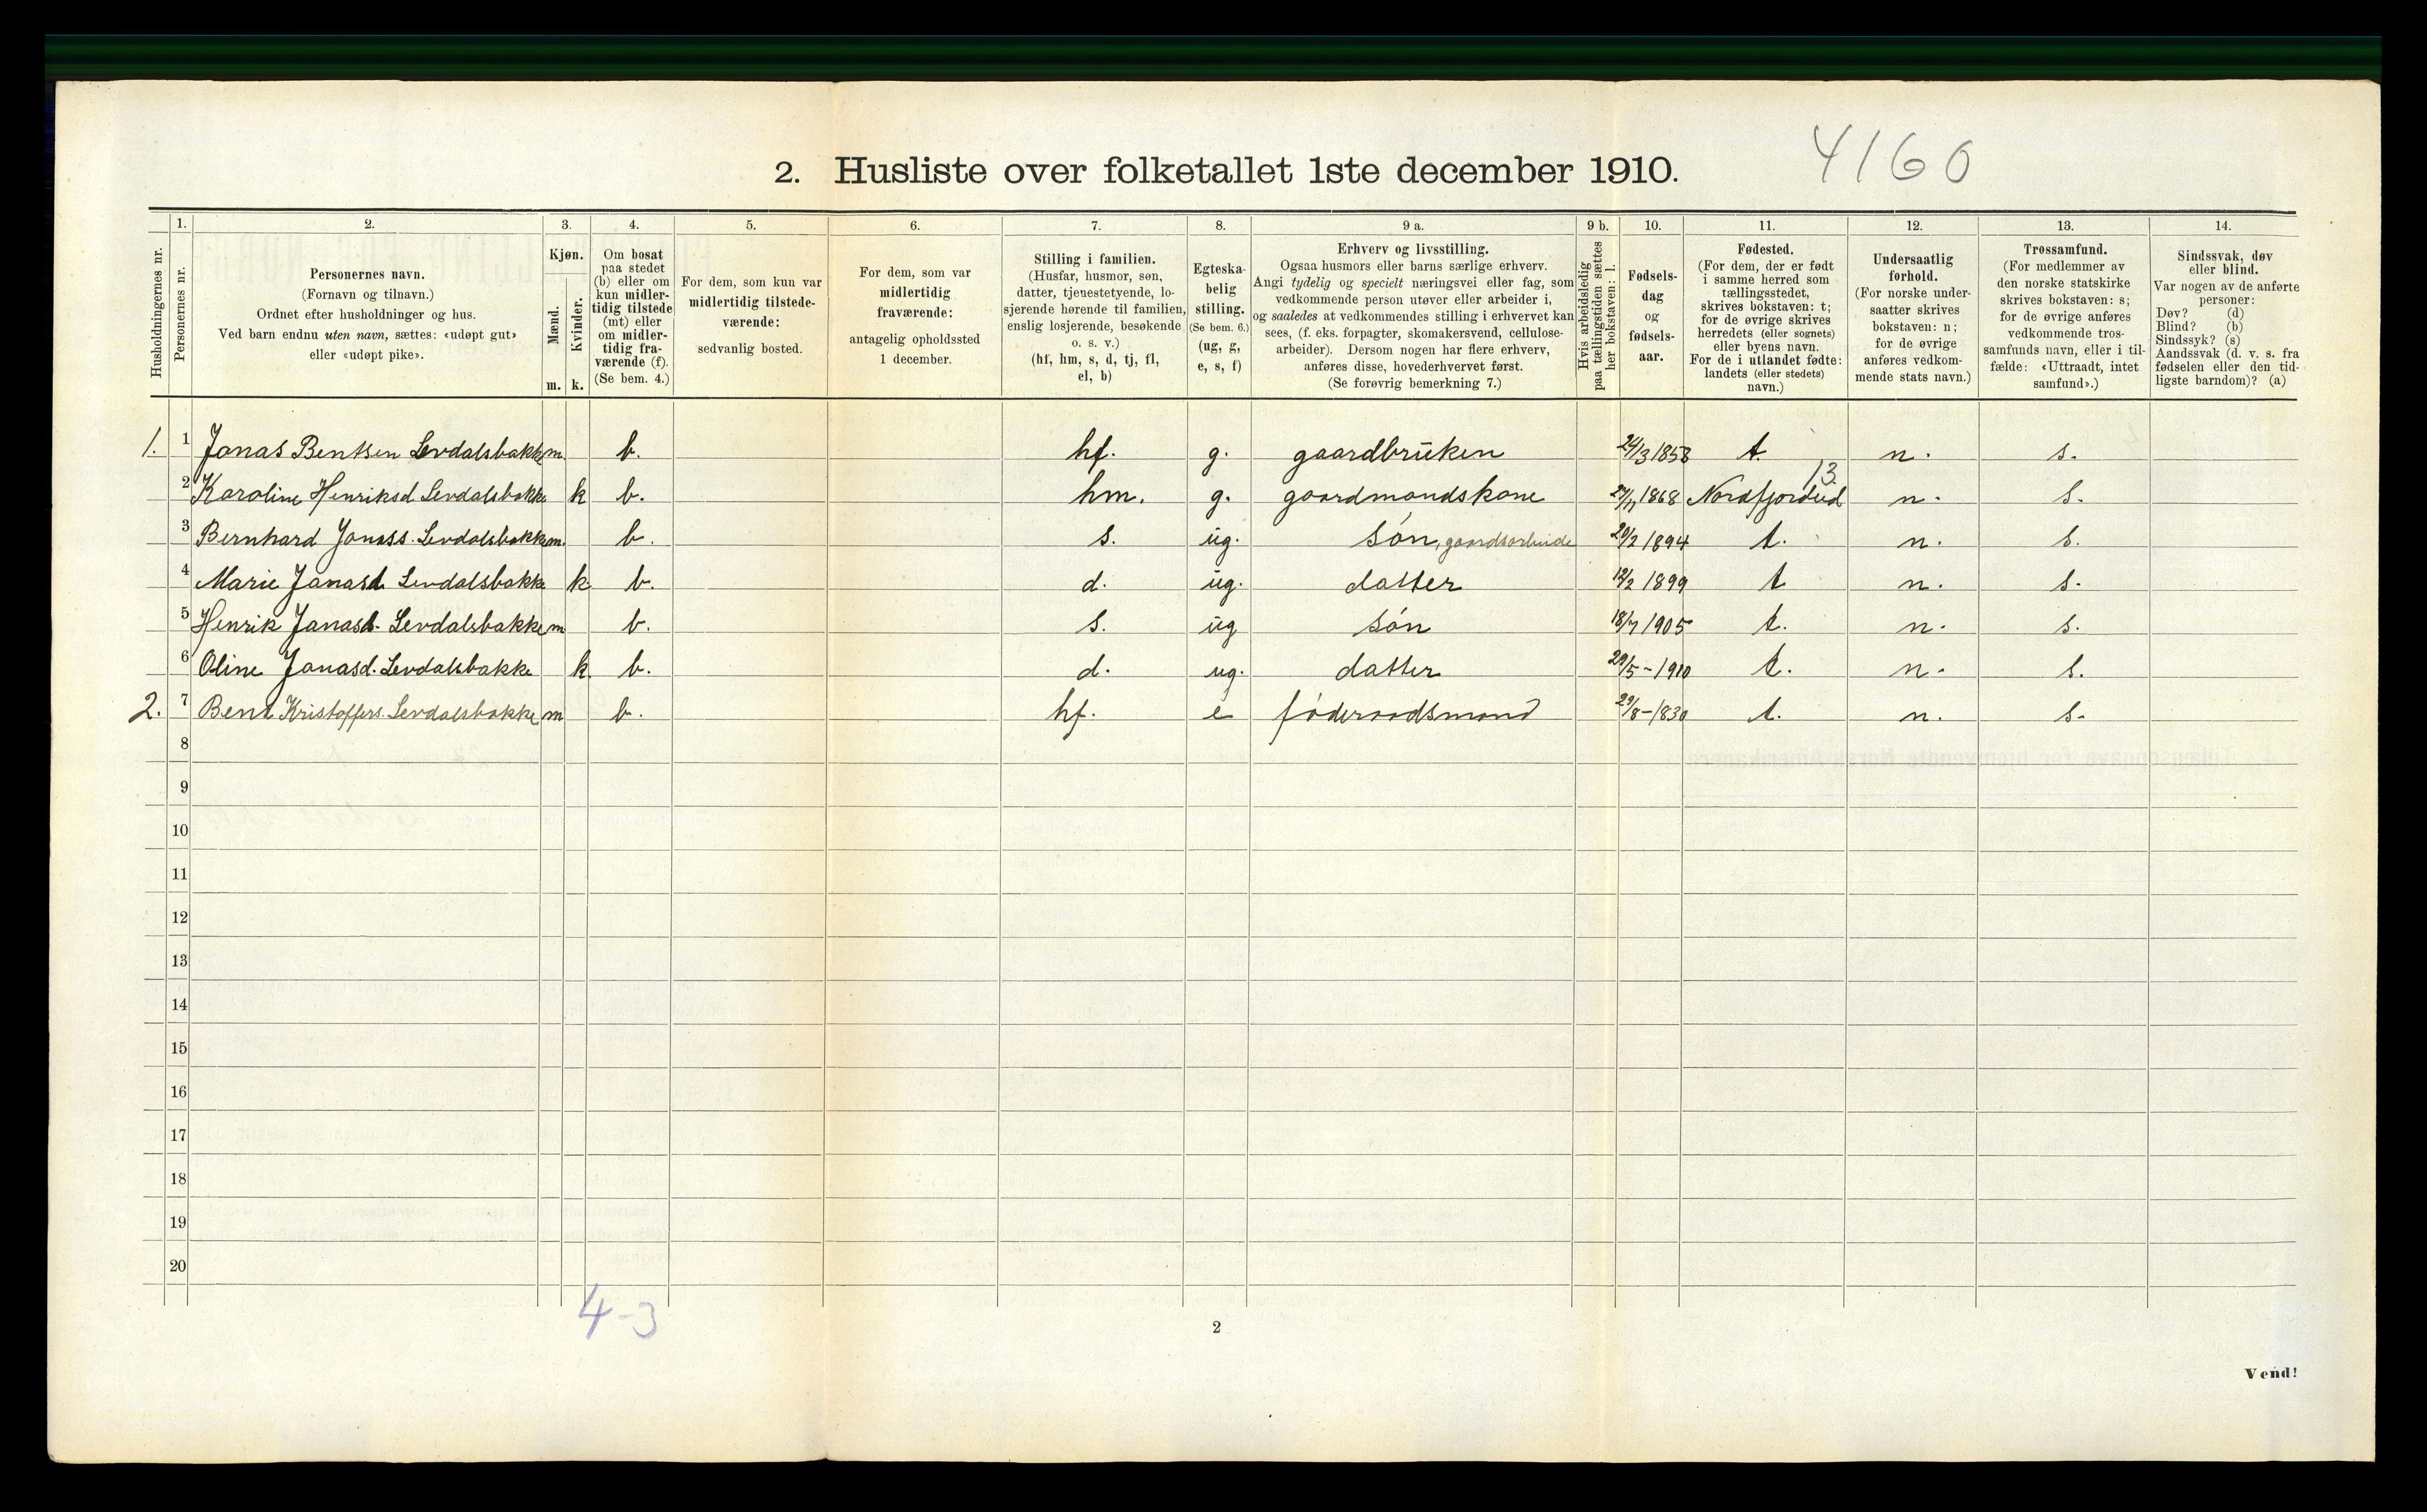 4160
2. Husliste over folketallet 1ste december 1910.
Husholdningernes nr.
1.
Personernes nr.
2.
Personernes navn.
(Fornavn og tilnavn.)
Ordnet efter husholdninger og hus.
Ved barn endnu uten navn, sættes: «udøpt gut»
eller «udøpt pike».
3.
Kjøn.
Mænd.
Kvinder.
m. k.
4.
Om bosat
paa stedet
(b) eller om
kun midler-
tidig tilstede
(mt) eller
om midler-
tidig fra-
værende (f).
(Se bem. 4.)
5.
For dem, som kun var
midlertidig tilstede-
værende:
sedvanlig bosted.
6.
For dem, som var
midlertidig
fraværende:
antagelig opholdssted
1 december.
7.
Stilling i familien.
(Husfar, husmor, søn,
datter, tjenestetyende, lo-
sjerende hørende til familien,
enslig losjerende, besøkende
o. s. v.)
(hf, hm, s, d, tj, fl,
el, b)
8.
Egteska-
belig
stilling.
(Se bem. 6.)
(ug, g,
e, s, f)
9 a.
Erhverv og livsstilling.
Ogsaa husmors eller barns særlige erhverv.
Angi tydelig og specielt næringsvei eller fag, som
vedkommende person utøver eller arbeider i,
og saaledes at vedkommendes stilling i erhvervet kan
sees, (f. eks. forpagter, skomakersvend, cellulose-
arbeider). Dersom nogen har flere erhverv,
anføres disse, hovederhvervet først.
(Se forøvrig bemerkning 7.)
9 b.
Hvis arbeidsledig
paa tællingstiden sættes
her bokstaven: l.
10.
Fødsels-
dag
og
fødsels-
aar.
11.
Fødested.
(For dem, der er født
i samme herred som
tællingsstedet,
skrives bokstaven: t;
for de øvrige skrives
herredets (eller sognets)
eller byens navn.
For de i utlandet fødte:
landets (eller stedets)
navn.)
12.
Undersaatlig
forhold.
(For norske under-
saatter skrives
bokstaven: n;
for de øvrige
anføres vedkom-
mende stats navn.)
13.
Trossamfund.
(For medlemmer av
den norske statskirke
skrives bokstaven: s;
for de øvrige anføres
vedkommende tros-
samfunds navn, eller i til-
fælde: «Uttraadt, intet
samfund».)
14.
Sindssvak, døv
eller blind.
Var nogen av de anførte
personer:
Døv? (d)
Blind? (b)
Sindssyk? (s)
Aandssvak (d. v. s. fra
fødselen eller den tid-
ligste barndom)? (a)
1. 1 Jonas Bentsen Levdalsbakke m. b. hf. g. gaardbruken 24/3 1858 t. n. s.
13
2 Karoline Henriksd Levdalsbakke k b. hm. g. gaardmandskone 1868 Nordfjordeid n. s.
3 Bernhard Jonass. Levdalsbakke m. b. s. ug. søn, gaardsarbeide 20/2 1894 t. n. s.
4 Marie Jonasd Levdalsbakke k b. d. ug. datter 12/2 1899 t n. s.
5 Henrik Jonass. Levdalsbakke m b. s. ug søn 18/7 1905 t. n. s.
6 Oline Jonasd. Levdalsbakke k. b. d. ug. datter 29/5-1910 t. n. s.
2. 7 Bent Kristoffers. Levdalsbakke m b. hf. e føderaadsmand 29/8-1830 t. n. s.
8
9
10
11
12
13
14
15
16
17
18
19
20
4-3
2
Vend!